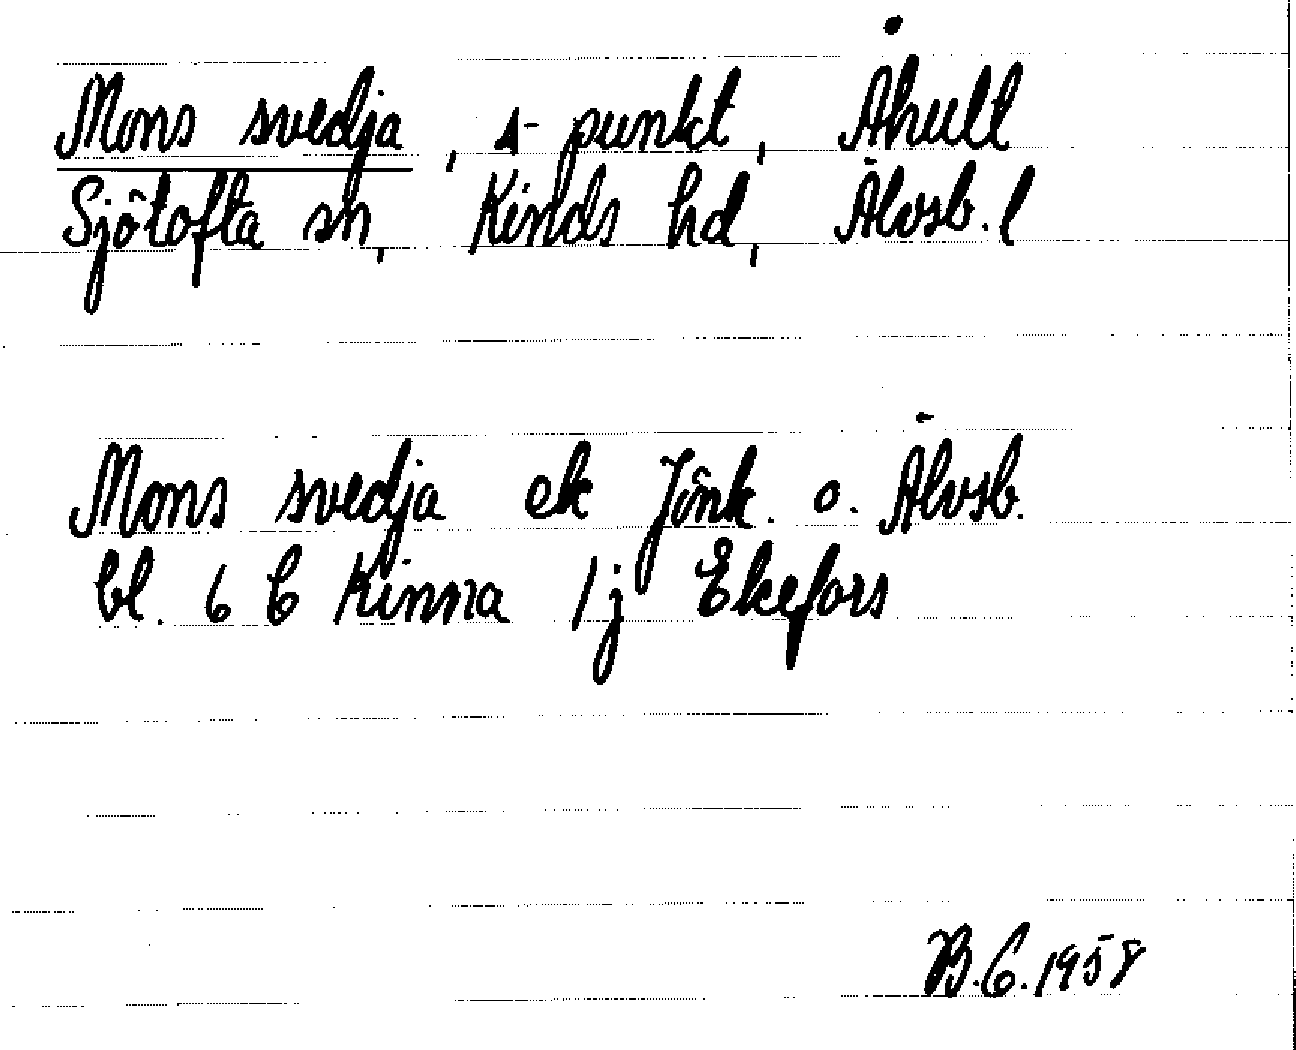 Mons svedja, Δ-punkt, Åhult
Sjötofta sn, Kinds hd, Älvsb. l
Mons svedja ek Jönk. o. Älvsb.
bl. 6 C Kinna 1j Ekefors
B.C. 1958